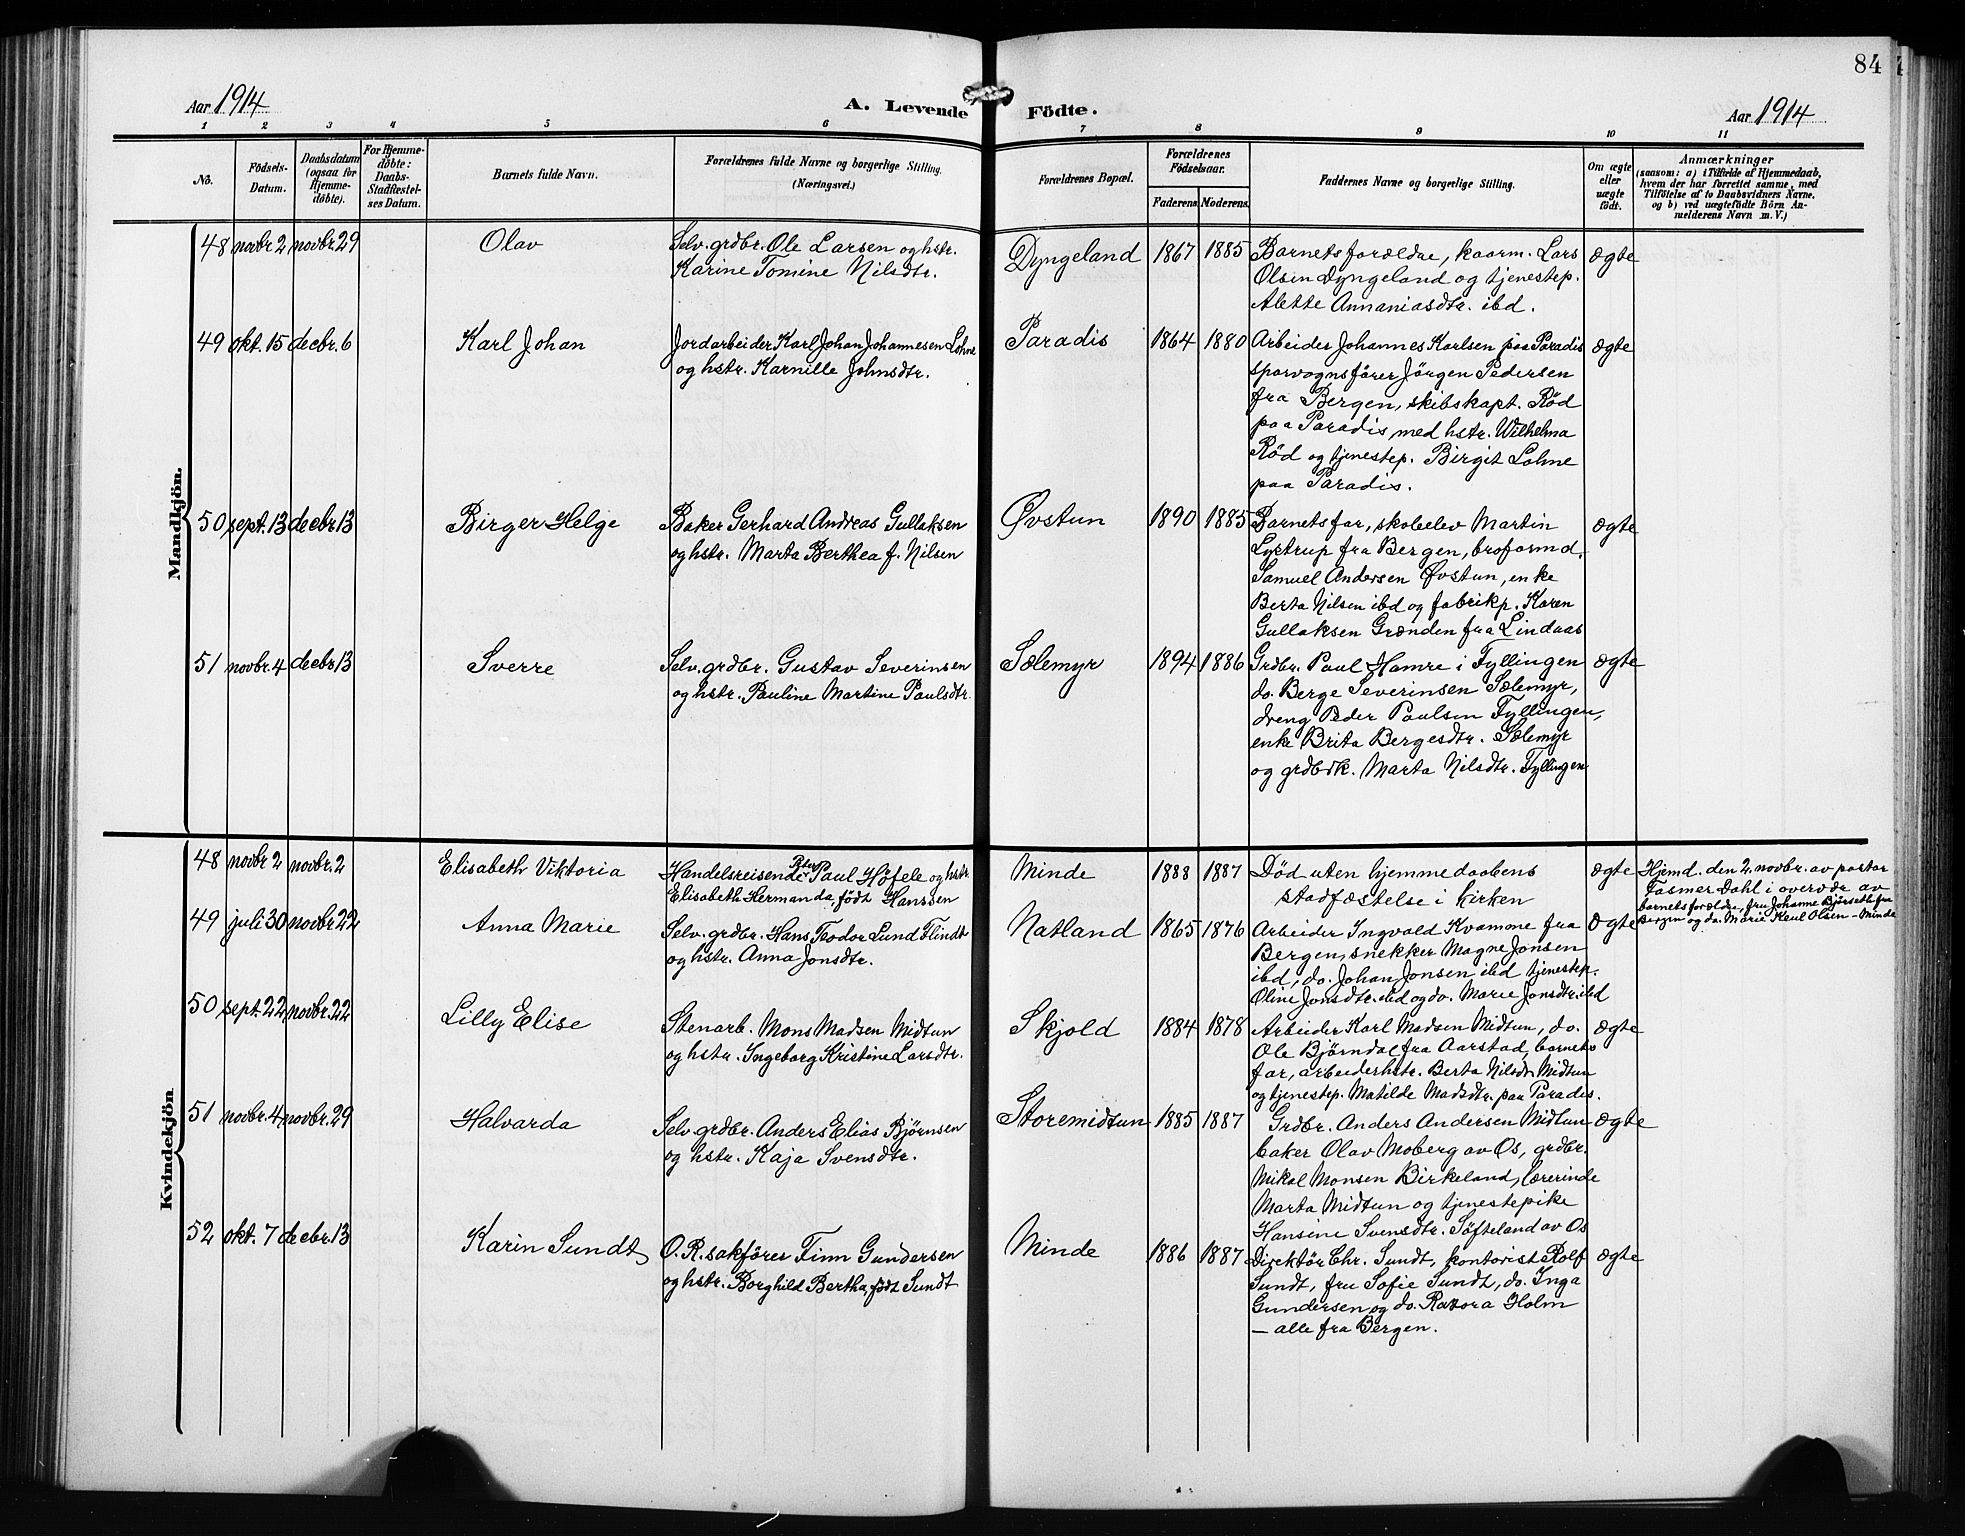 84
Aar 1914
A. Levende Födte.
Aar 1914
1 2 3 4 5 6 7 8 9 10 11
No.
Födsels-
Datum.
Daabsdatum
(ogsaa for
Hjemme-
döbte).
For Hjemme-
döbte:
Daabs-
Stadfæstel-
ses Datum.
Barnets fulde Navn.
Forældrenes fulde Navne og borgerlige Stilling.
(Næringsvei.)
Forældrenes Bopæl.
Forældrenes
Födselsaar.
Faderens Moderens
Faddernes Navne og borgerlige Stilling.
Om ægte
eller
uægte
födt.
Anmærkninger
(saasom: a) i Tilfælde af Hjemmedaab,
hvem der har forrettet samme, med
Tilföielse af to Daabsvidners Navne,
og b) ved uægtefödte Börn An-
melderens Navn m. V.)
Mandkjön.
48 novbr. 2 novbr. 29
Olav
Selv. grdbr. Ole Larsen og hstr.
Karine Tomine Nilsdtr.
Dyngeland
1867 1885
Barnets forældre, kaarm. Lars
Olsen Dyngeland og tjenestep.
Alette Annaniasdtr. ibd.
ægte
49 okt. 15 decbr. 6
Karl Johan
Jordarbeider Karl Johan Johannesen Lohne
og hstr. Karnille Johnsdtr.
Paradis
1864 1880
Arbeider Johannes Karlsen paa Paradis
sporvognsfører Jörgen Pedersen
fra Bergen, skibskapt. Rød
paa Paradis, med hstr. Wilhelma
Rød og tjenestep. Birgit Lohne
paa Paradis.
ægte
50 sept. 13 decbr. 13
Birger Helge
Baker Gerhard Andreas Gullaksen
og hstr. Marta Berthea f. Nilsen
Øvstun
1890 1885
Barnets far, skoleelev Martin
Lystrup fra Bergen, broformd.
Samuel Andersen Øvstun, enke
Berta Nilsen ibd og fabrikp. Karen
Gullaksen Grænden fra Lindaas
ægte
51 novbr. 4 decbr. 13
Sverre
Selv. grdbr. Gustav Severinsen
og hstr. Pauline Martine Paulsdtr.
Sælemyr
1894 1886
Grdbr. Paul Hamre i Fyllingen
do. Berge Severinsen Sælemyr,
dreng Peder Paulsen Fyllingen,
enke Brita Bergesdtr. Sælemyr
og grdbrk. Marta Nilsdtr. Fyllingen
ægte
Kvindekjön
48 novbr. 2 novbr. 2
Elisabeth Viktoria
Handelsreisende Peter Paul Høfele og hstr.
Elisabeth Hermanda, født Hanssen
Minde
1888 1887
Død uten hjemmedaabens
stadfæstelse i kirken
ægte
Hjemd. den 2. novbr. av pastor
Fasmer Dahl i overvær av
barnets forældre, fru Johanne Bjørseth fra
Bergen og do. Marie Keul Olsen - Minde
49 juli 30 novbr. 22
Anna Marie
Selv. grdbr. Hans Teodor Lund Flindt
og hstr. Anna Jonsdtr.
Natland
1865 1876
Arbeider Ingvald Kvamme fra
Bergen, snekker Magne Jonsen
ibd, do. Johan Jonsen ibd tjenestep.
Oline Jonsdtr. ibd og do. Marie Jonsdtr. ibd
ægte
50 sept. 22 novbr. 22
Lilly Elise
Stenarb. Mons Madsen Midtun
og hstr. Ingeborg Kristine Larsdtr.
Skjold
1884 1878
Arbeider Karl Madsen Midtun, do.
Ole Bjørndal fra Aarstad, barnets
far, arbeiderhstr. Berta Nilsdtr. Midtun
og tjenestep. Matilde Madsdtr. paa Paradis.
ægte
51 novbr. 4 novbr. 29
Halvarda
Selv. grdbr. Anders Elias Bjørnsen
og hstr. Kaja Svensdtr.
Storemidtun
1885 1887
Grdbr. Anders Andersen Midtun
baker Olav Moberg av Os, grdbr.
Mikal Monsen Birkeland, lærerinde
Marta Midtun og tjenestepike
Hansine Svensdtr. Søfteland av Os
ægte
52 okt. 7 decbr. 13
Karin Sundt
O. R. sakfører Finn Gundersen
og hstr. Borghild Bertha, født Sundt
Minde
1886 1887
Direktør Chr. Sundt, kontorist Rolf
Sundt, fru Sofie Sundt, do. Inga
Gundersen og do. Holm
— alle fra Bergen.
ægte